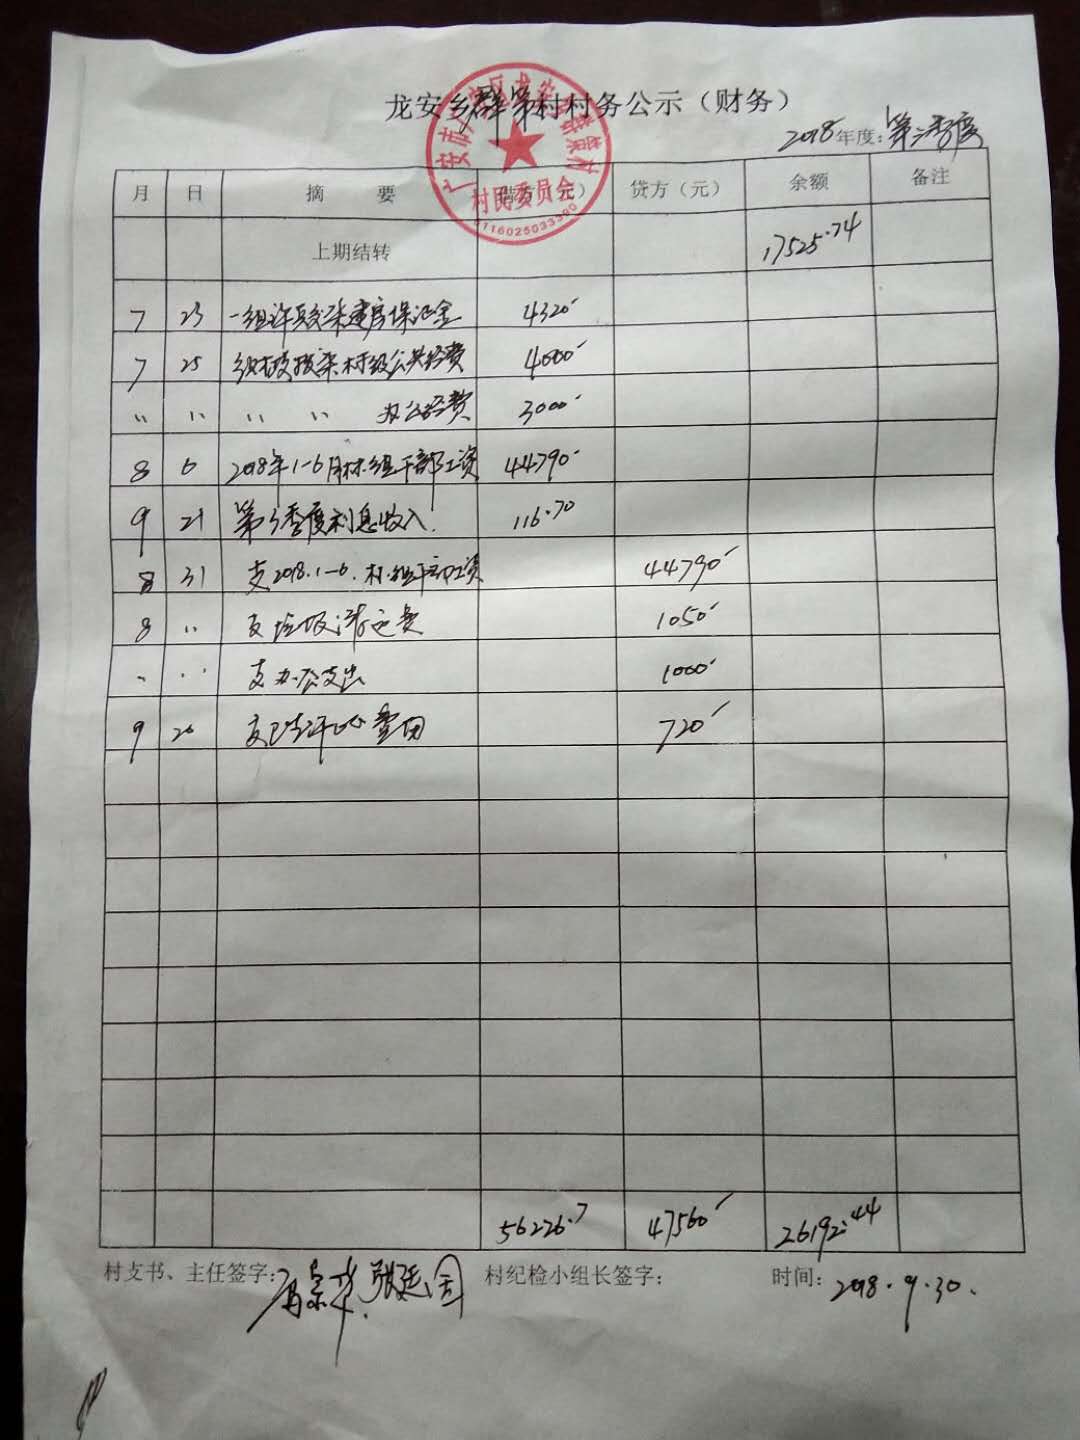 龙安乡群策村村务公示（财务）
2018年度：第三季度
月 日 摘 要 借方（元） 贷方（元） 余额 备注
上期结转 17525.74
7 23 一组许 交来建房保证金 4320
7 25 乡财政拨来村级公共经费 4000
〃 〃 〃 〃 办公经费 3000
8 6 2018年1-6月村组干部工资 44790
9 21 第3季度利息收入 116.70
8 31 支2018.1-6.村组干部工资 44790
8 〃 支垃圾清运费 1050
〃 〃 支办公支出 1000
9 26 支 费用 720
56226.7 47560 26192.44
村支书、主任签字： 村纪检小组长签字： 时间：2018.9.30.
村民委员会
5116025033390